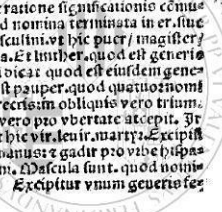 ratione significationis cõmu
d nomina terminata in er. siue
sculini. vt hic puer / magister /
a. Et linther. quod est generis
dicat quod est eiusdem gene-
st pauper. quod quatuornomi
recrisim obliquis vero trium.
vero pro vbertate accepit. It
hic vir. leuir. martyr. Excipit
manus: ⁊ gadir pro vrbe hispa-
m. Mascula sunt. quod nomi-
Excipitur vnum generis fe